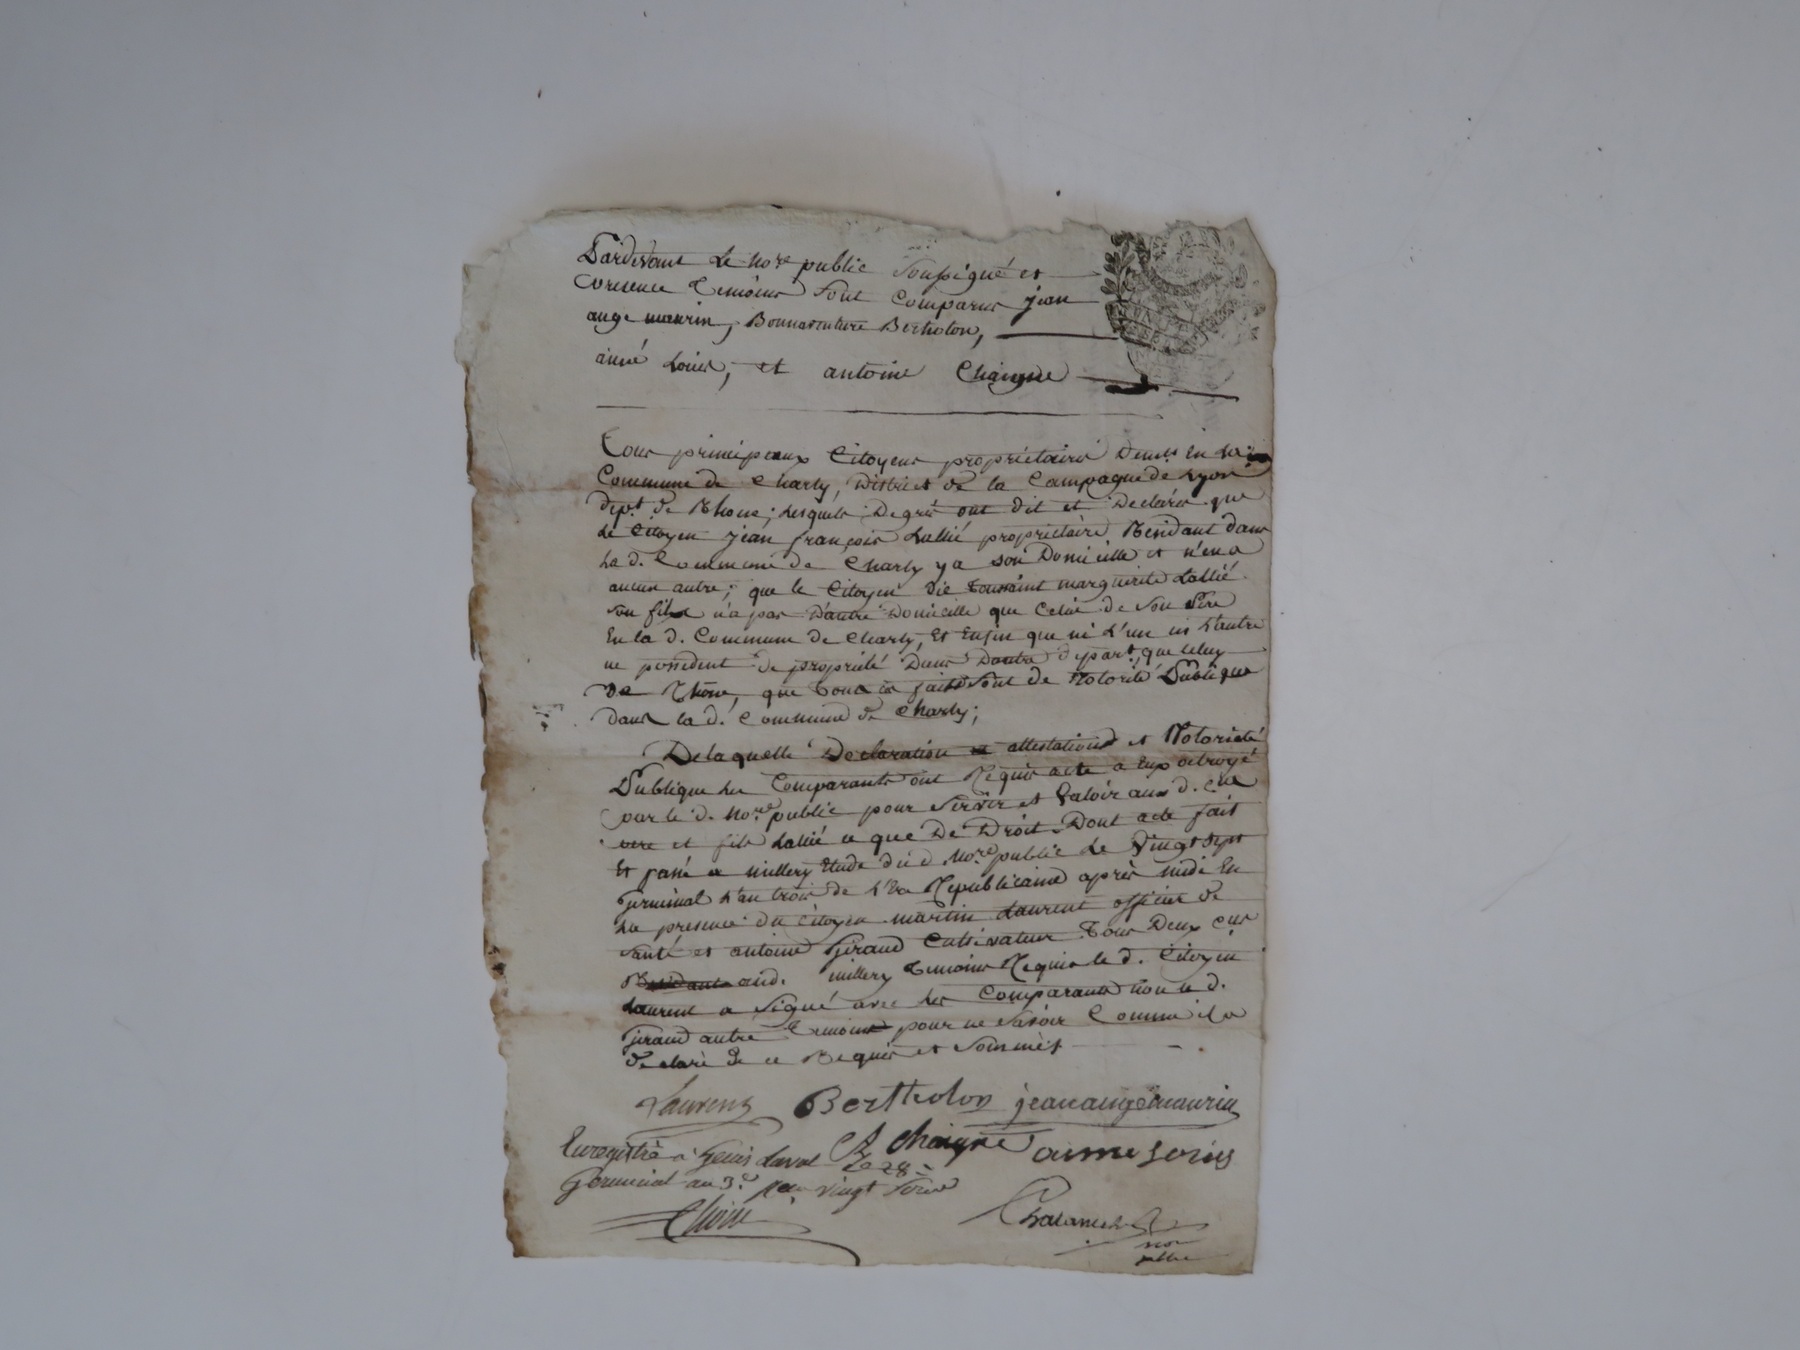 Pardevant Le no.re public Soussigné et
presence Temoins Sont Comparus jean
ange maurin, Bonnaventure Bertholon,
aimé Loüis, et antoine Chaigne
Tous principaux Citoyens propriétaires Demts En La
Commune de Charly, District de la Campagne de Lyon
dep.t de Rhone; Lesquels Degrés ont dit et Declarés que
Le Citoyen jean françois Lallié propriétaire Residant dans
La d. Commune de Charly y a son Domicille et n'en a
aucun autre; que le Citoyen Toussaint marguerite Lallié
son fils n'a pas Dautre Domicille que Celui de Son Père
En la d. Commune de Charly, Et Enfin que ni L'un ni L'autre
ne possedent de propriété Dans Dautre depart.t que Celuy
De Rhône, que Tous ces faits Sont de Notorité Publique
dans la d. Commune de Charly;
Delaquelle Declaration attestation et Notorieté
Publique Les Comparants ont Requis acte a Eux octroyé
par le d. no.re public pour Servir et Valoir aux d. C.ens
pere et fils Lallié ce que De Droit. Dont acte fait
Et passé a millery Etude du d. No.re public Le Vingt Sept
Germinal L'an trois de L'Ere Republicaine après midi En
La presence du Citoyen martin Laurent officier de
Santé et antoine Giraud Cultivateur Tous Deux
aud. millery Temoins Requis le d. Citoyen
Laurent a Signé avec Les Comparants non le d.
Giraud autre Temoin pour ne Savoir Comme il a
declaré de ce Requis et Sommés
Laurens Berttholon jean ange maurin
Enregistré a Genis Laval Le 28 A Chaigne aime Louis
Germinal an 3.e vingt Sous